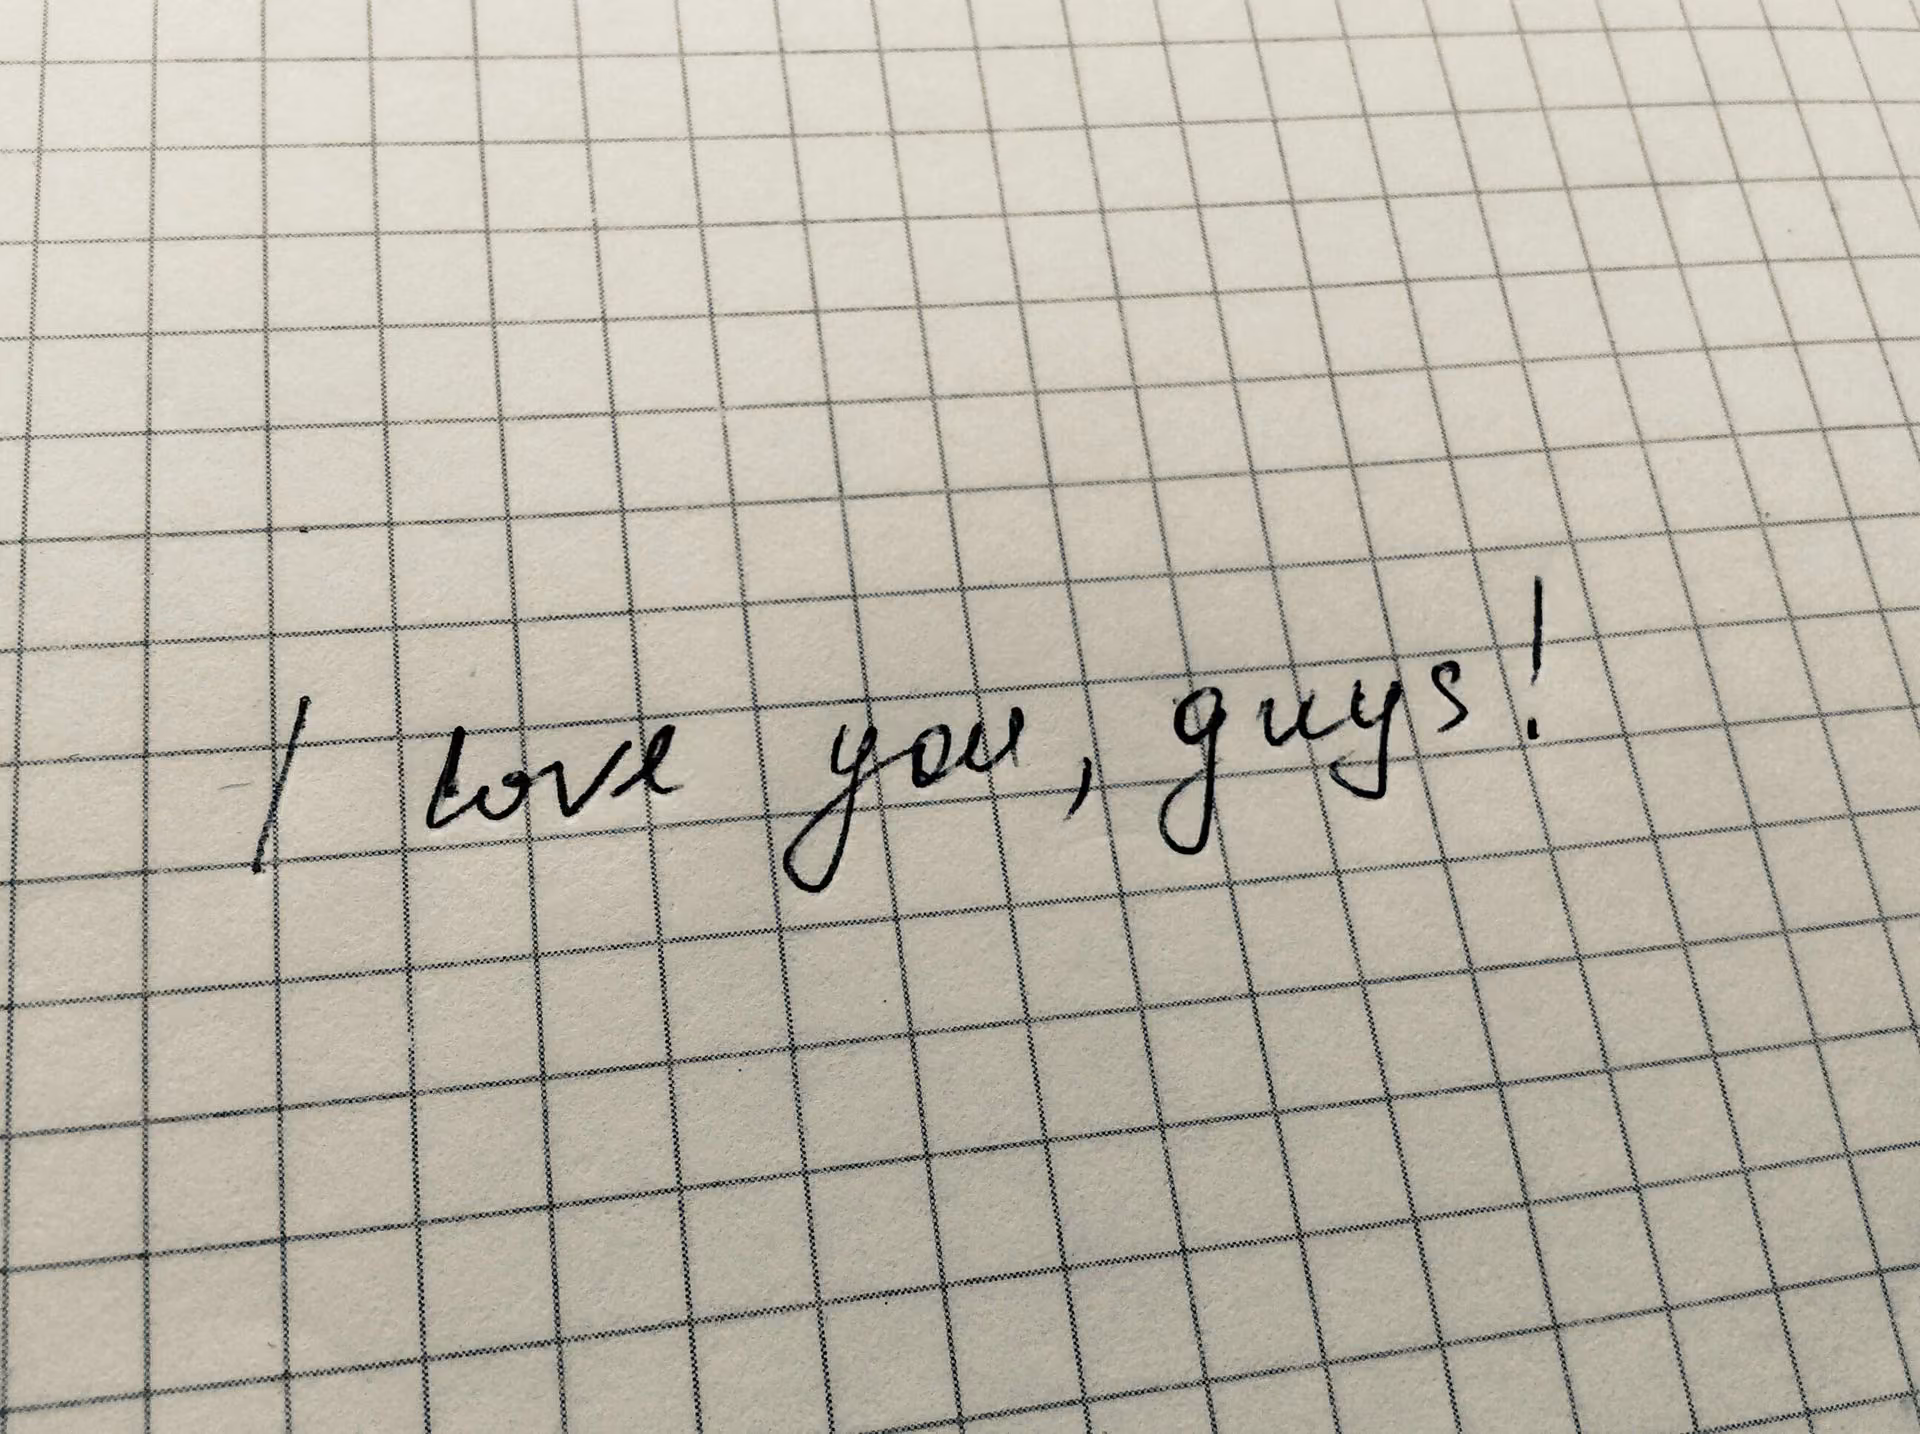 I love you, guys!